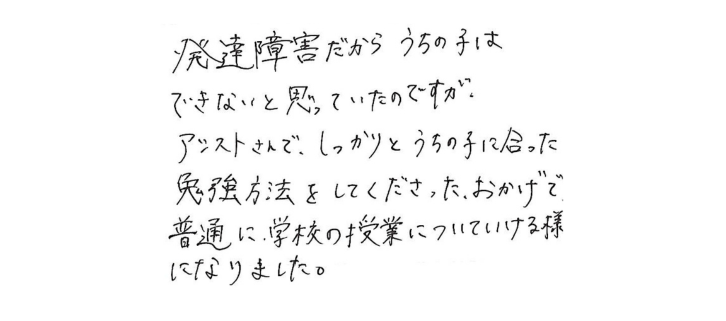 発達障害だから うちの子は
できないと思っていたのですが、
アシストさんで、しっかりとうちの子に合った
勉強方法をしてくださった、おかげで
普通に、学校の授業についていける様
になりました。